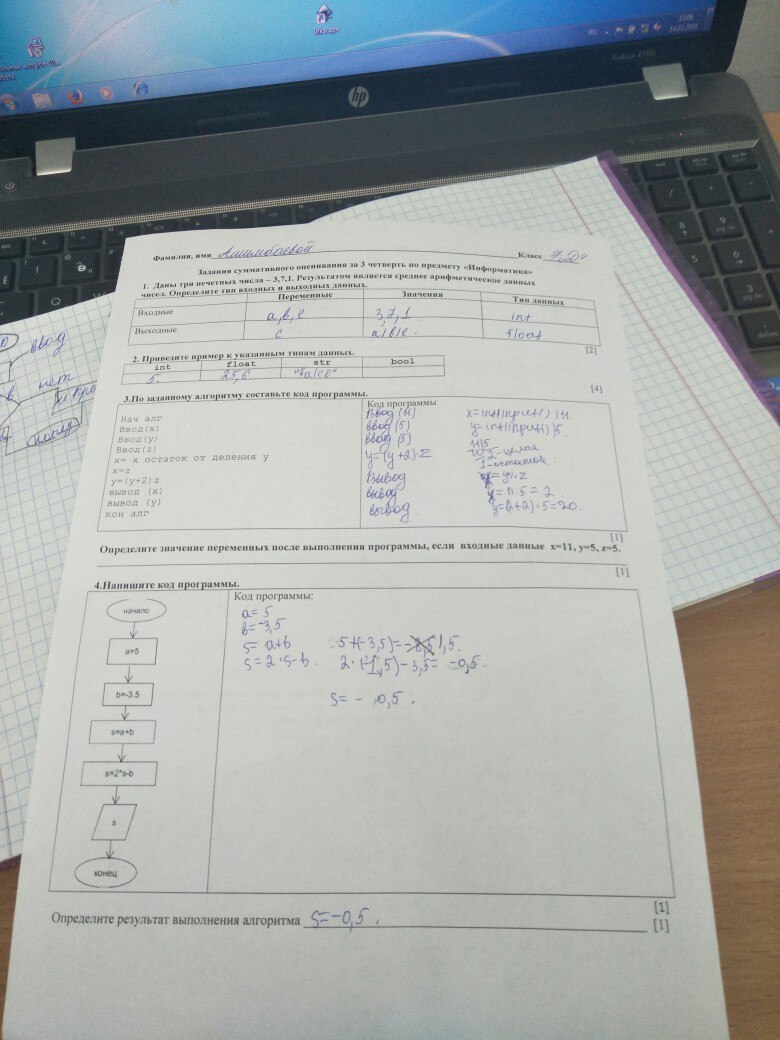 Inkscape
RU
17:06
14.03.2018
ProBook 4530s
hp
ввод
нет
Фамилия, имя Ашимбаевой Класс 7 "Д"
Задания суммативного оценивания за 3 четверть по предмету «Информатика»
1. Даны три нечетных числа – 3,7,1. Результатом является среднее арифметическое данных
чисел. Определите тип входных и выходных данных.
Переменные Значения Тип данных
Входные a,b,c 3,7,1 int
Выходные c a/b/c. float
[2]
2. Приведите пример к указанным типам данных.
int float str bool
5. 25,6 "False"
[4]
3.По заданному алгоритму составьте код программы.
Нач алг
Ввод(x)
Ввод(y)
Ввод(z)
x= x остаток от деления y
x=z
y=(y+2)z
вывод (x)
вывод (y)
кон алг
Код программы
Ввод (11)
ввод (5)
ввод (5)
y=(y+2)·z
Вывод
вывод
вывод
x=int(input()) 11
y=int(input()) 5.
11|5
10 2-целая
1-остаток.
y=11·5=2
z=(2+2)·5=20.
[1]
Определите значение переменных после выполнения программы, если входные данные x=11, y=5, z=5.
[1]
4.Напишите код программы.
начало
a=5
b=-3.5
s=a+b
s=2*s-b
s
конец
Код программы:
a=5
b=-3,5
s=a+b 5+(-3,5)= 1,5.
s=2*s-b. 2·(-1,5)-3,5= -0,5.
s= - 0,5.
[1]
Определите результат выполнения алгоритма s=-0,5. [1]